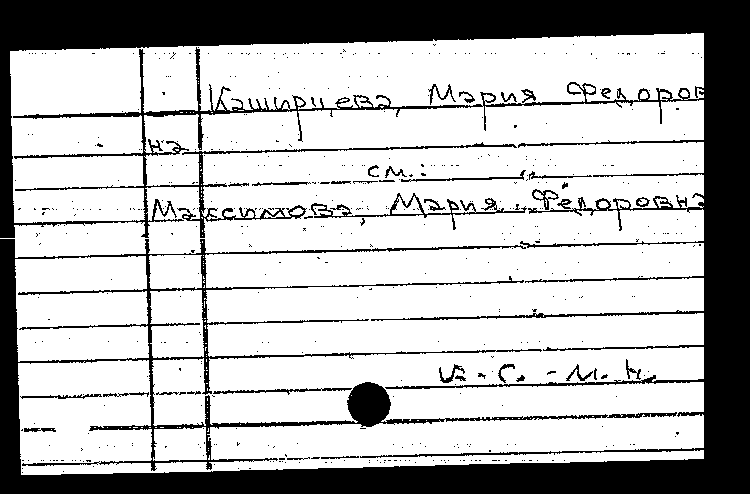 Каширцева, Мария Федоров
на
см.:
Максимова, Мария Фёдоровна